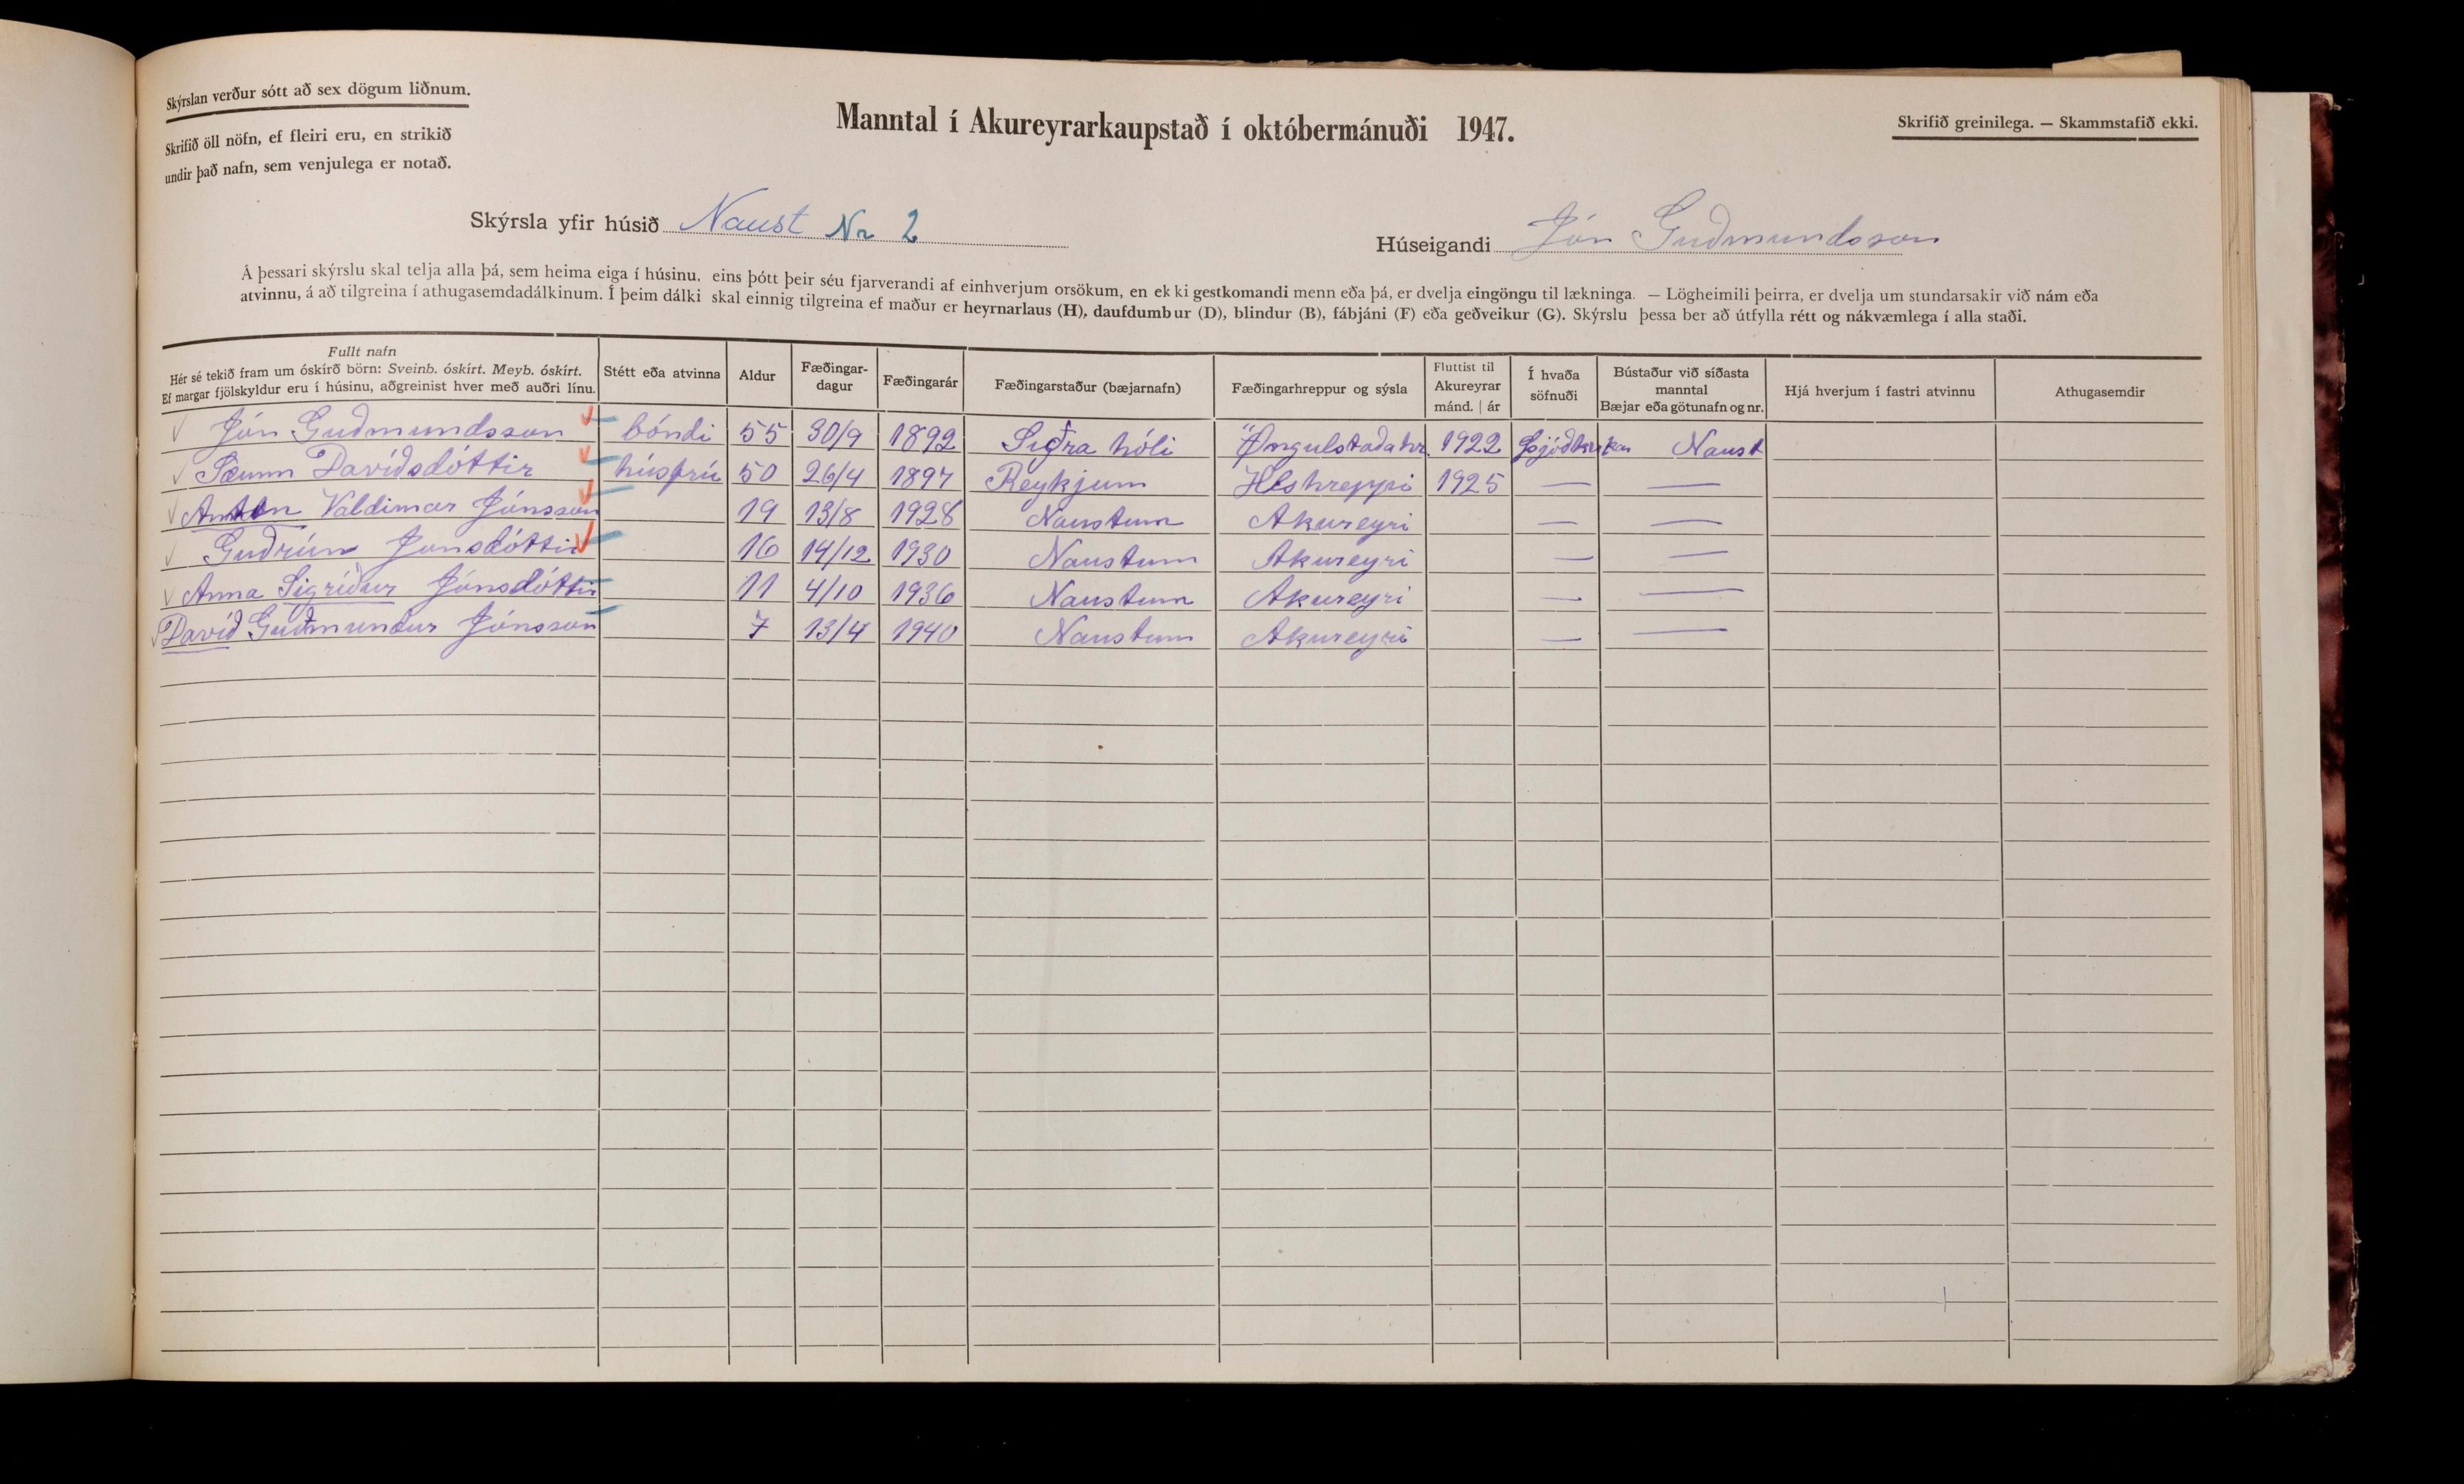 Skýrslan verður sótt að sex dögum liðnum.
Skrifið öll nöfn, ef fleiri eru, en strikið
undir það nafn, sem venjulega er notað.
Manntal í Akureyrarkaupstað í októbermánuði 1947.
Skrifið greinilega. — Skammstafið ekki.
Skýrsla yfir húsið Naust Nr 2
Húseigandi Jón Guðmundsson
Á þessari skýrslu skal telja alla þá, sem heima eiga í húsinu, eins þótt þeir séu fjarverandi af einhverjum orsökum, en ekki gestkomandi menn eða þá, er dvelja eingöngu til lækninga. — Lögheimili þeirra, er dvelja um stundarsakir við nám eða
atvinnu, á að tilgreina í athugasemdadálkinum. Í þeim dálki skal einnig tilgreina ef maður er heyrnarlaus (H), daufdumbur (D), blindur (B), fábjáni (F) eða geðveikur (G). Skýrslu þessa ber að útfylla rétt og nákvæmlega í alla staði.
Fullt nafn
Hér sé tekið fram um óskírð börn: Sveinb. óskírt. Meyb. óskírt.
Ef margar fjölskyldur eru í húsinu, aðgreinist hver með auðri línu.
Stétt eða atvinna
Aldur
Fæðingar-
dagur
Fæðingarár
Fæðingarstaður (bæjarnafn)
Fæðingarhreppur og sýsla
Fluttist til
Akureyrar
mánd. | ár
Í hvaða
söfnuði
Bústaður við síðasta
manntal
Bæjar eða götunafn og nr.
Hjá hverjum í fastri atvinnu
Athugasemdir
Jón Guðmundsson bóndi 55 30/9 1892 hóli Öngulstaðahr. 1922 Þjóðkirkan Naust
Sæunn Davíðsdóttir húsfrú 50 26/4 1897 Reykjum Hlshreppi 1925 — —
Anton Valdimar Jónsson 19 13/8 1928 Naustum Akureyri — —
Guðrún Jonsdóttir 16 14/12 1930 Naustum Akureyri — —
Anna Sigríður Jónsdóttir 11 4/10 1936 Naustum Akureyri — —
Davíð Guðmundur Jónsson 7 13/4 1940 Naustum Akureyri — —